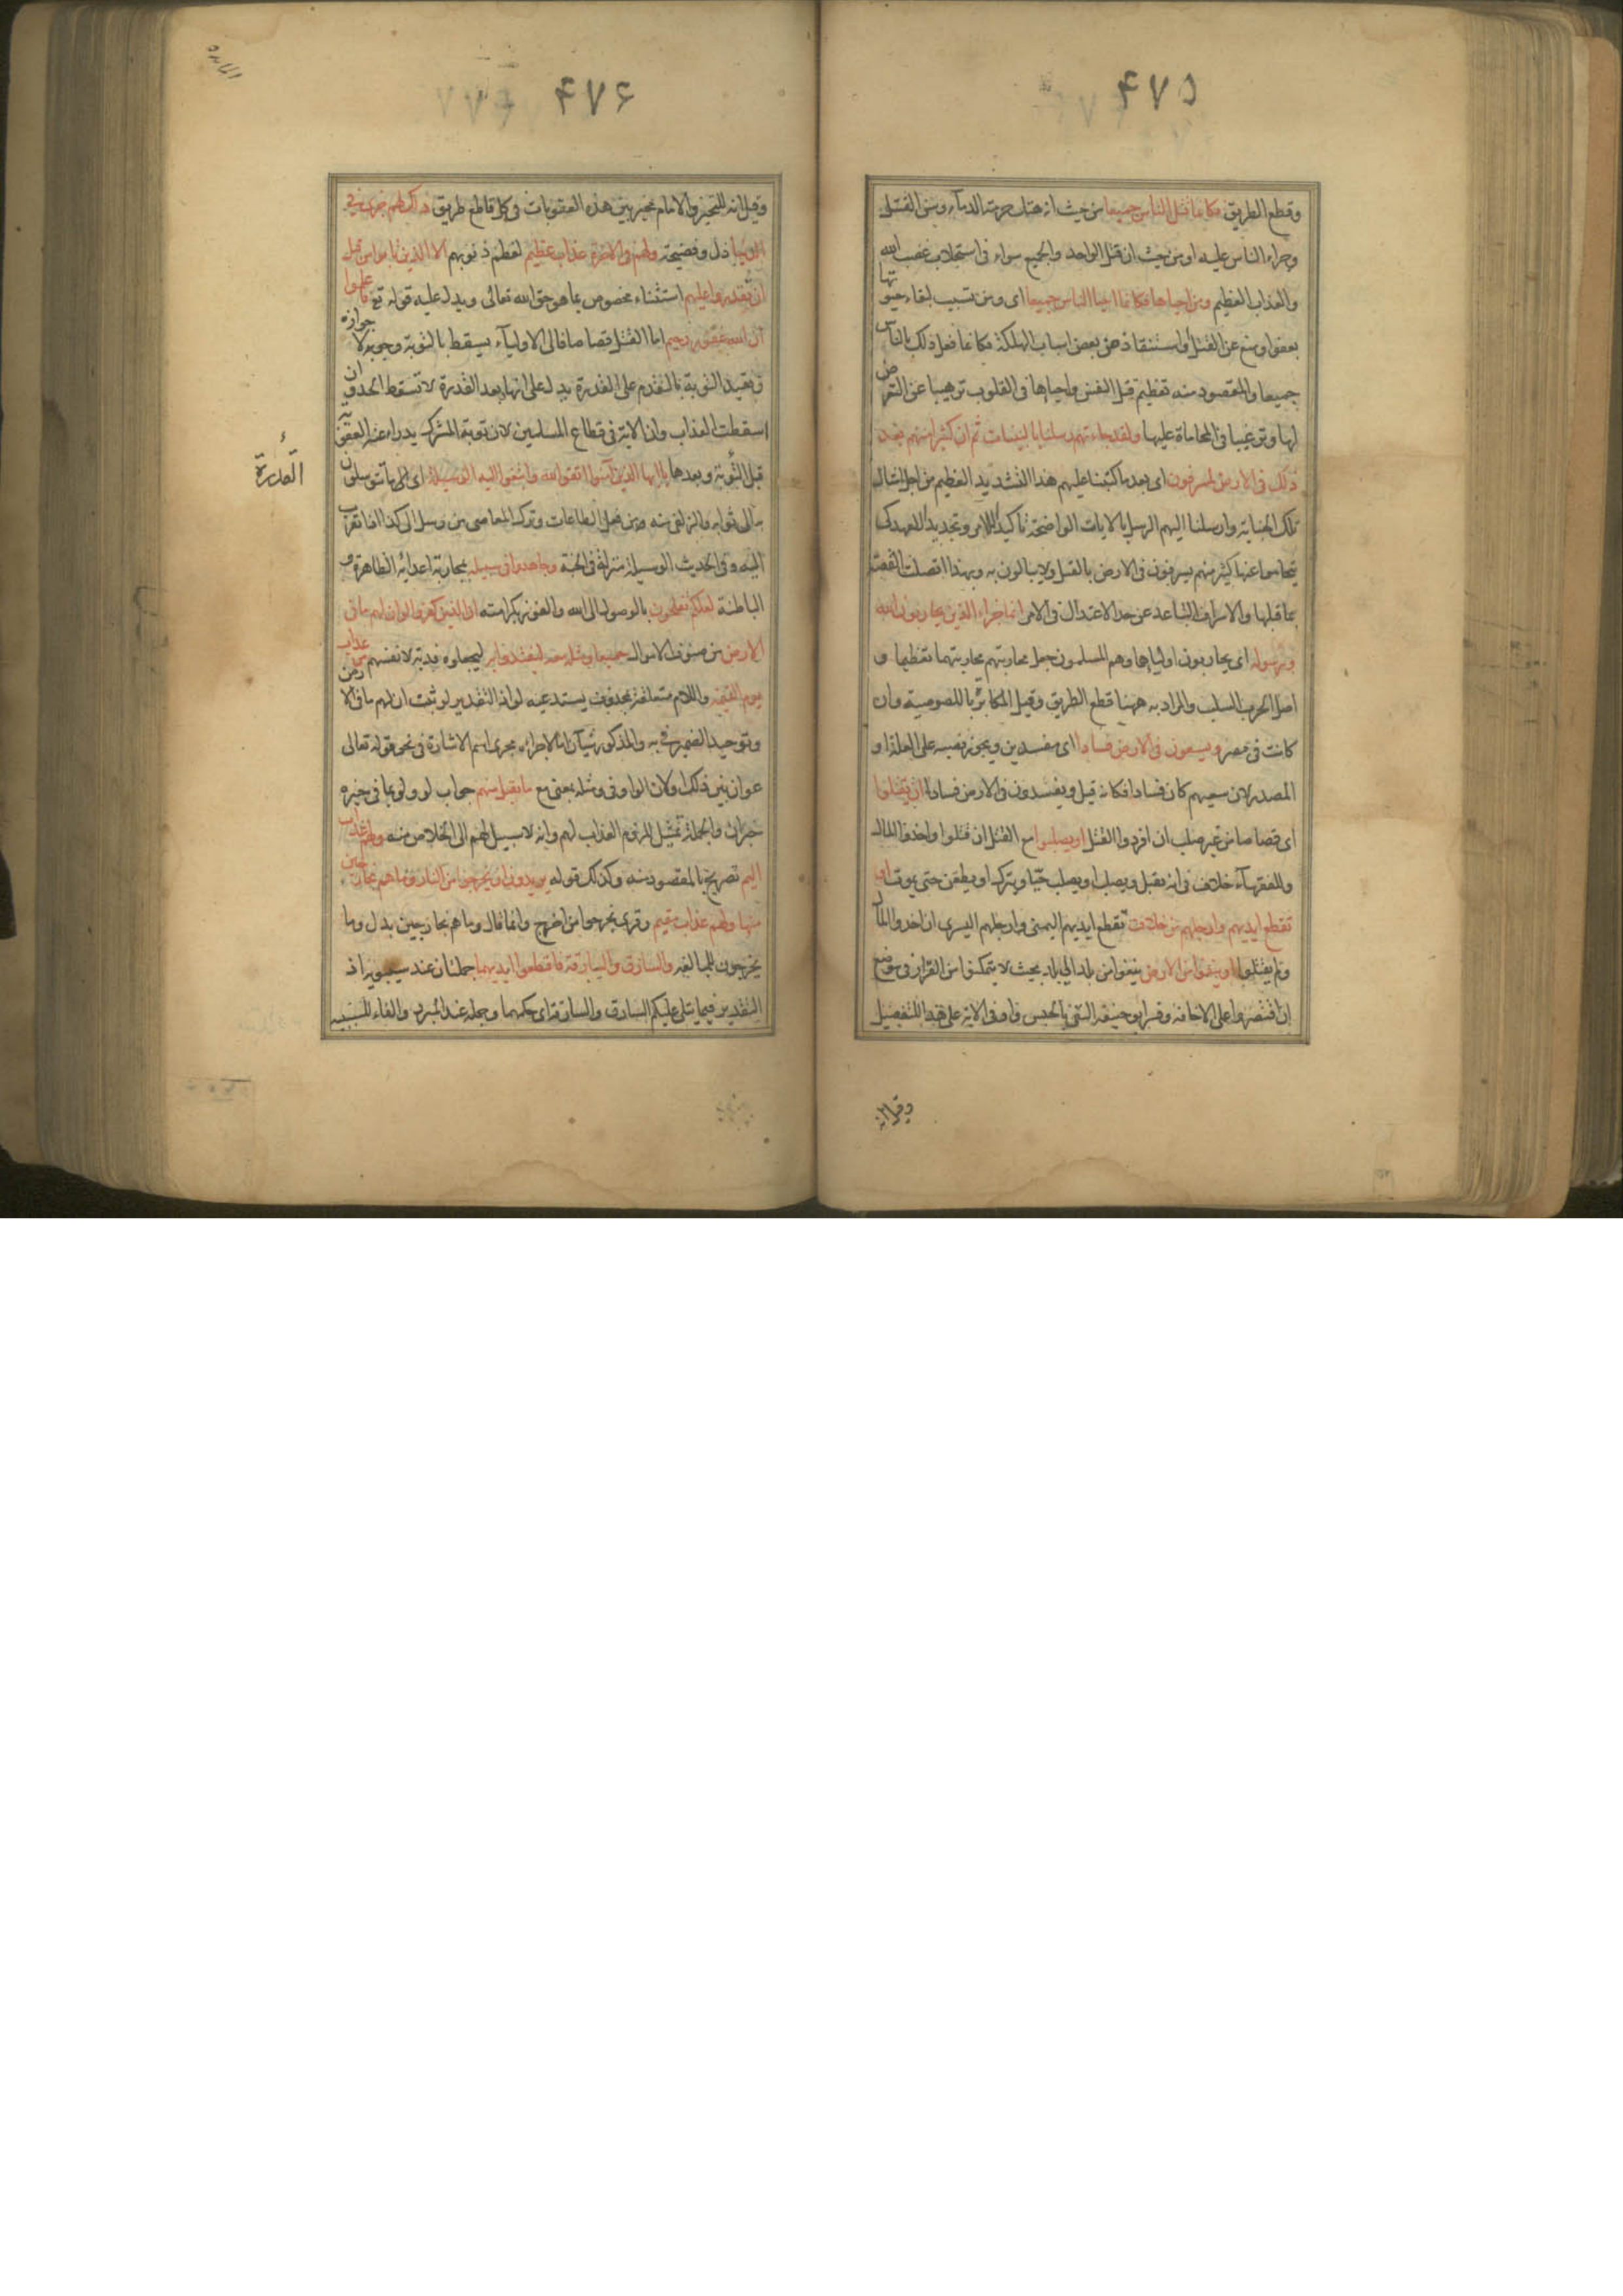 ۴۷۵
وقطع الطريق فكانما قتل الناس جميعا من حيث انه هتك حرمة الدماء وسن القتل
وجراء الناس عليه او من حيث ان قتل الواحد والجميع سواء في استجلاب غضب الله
والعذاب العظيم ومن احياها فكانما احيا الناس جميعا اى ومن تسبب لبقاء حيوتها
بعفو او منع عن القتل او استنقاذ من بعض اسباب الهلكة فكانما فعل ذلك بالناس
جميعا والمقصود منه تعظيم قتل النفس واحياها في القلوب ترهيبا عن التعرض
لها وترغيبا في المحاماة عليها ولقد جاءتهم رسلنا بالبينات ثم ان كثيرا منهم بعد
ذلك في الارض لمسرفون اى بعد ما كتبنا عليهم هذا التشديد العظيم من اجل امثال
تلك الجناية وارسلنا اليهم الرسل بالايات الواضحة تاكيدا للامر وتجديدا للعهد كى
يتحاموا عنها كثير منهم يسرفون في الارض بالقتل ولا يبالون به وبهذا اتصلت القصة
بما قبلها والاسراف التباعد عن حد الاعتدال في الامر انما جزاء الذين يحاربون الله
ورسوله اى يحاربون اولياءها وهم المسلمون جعل محاربتهم محاربتهما تعظيما و
اصل الحرب السلب والمراد به ههنا قطع الطريق وقيل المكابرة باللصوصية وان
كانت في مصر ويسعون في الارض فسادا اى مفسدين ويجوز نصبه على العلة او
المصدر لان سعيهم كان فسادا فكانه قيل ويفسدون في الارض فسادا ان يقتلوا
اى قصاصا من غير صلب ان افردوا القتل او يصلبوا مع القتل ان قتلوا واخذوا المال
وللفقهاء خلاف في انه يقتل ويصلب او يصلب حيا ويترك او يطعن حتى يموت او
تقطع ايديهم وارجلهم من خلاف تقطع ايديهم اليمنى وارجلهم اليسرى ان اخذوا المال
ولم يقتلوا او ينفوا من الارض ينفوا من بلد الى بلد بحيث لا يتمكنوا من القرار في موضع
ان اقتصروا على الاخافة وفسر ابو حنيفة النفى بالحبس واو في الاية على هذا للتفصيل
۴۷۶
المائده
وقيل انه للتخيير والامام مخير بين هذه العقوبات في كل قاطع طريق ذلك لهم خزى في
الدنيا ذل وفضيحة ولهم في الاخرة عذاب عظيم لعظم ذنوبهم الا الذين تابوا من قبل
ان تقدروا عليهم استثناء مخصوص بما هو حق الله تعالى ويدل عليه قوله تع فاعلموا
ان الله غفور رحيم اما القتل قصاصا فالى الاولياء يسقط بالتوبة وجوبه لا جوازه
وتقييد التوبة بالتقدم على القدرة يدل على انها بعد القدرة لا تسقط الحد وان
اسقطت العذاب وان الاية في قطاع المسلمين لان توبة المشرك يدراء عنه العقوبة
القدرة
قبل التوبة وبعدها يا ايها الذين آمنوا اتقوا الله وابتغوا اليه الوسيلة اى الى ما تتوسلون
به الى ثوابه والزلفى منه من فعل الطاعات وترك المعاصى من وسل الى كذا اذا تقرب
اليه وفي الحديث الوسيلة منزلة في الجنة وجاهدوا في سبيله بمحاربة اعدائه الظاهرة و
الباطنة لعلكم تفلحون بالوصول الى الله والفوز بكرامته ان الذين كفروا لو ان لهم ما في
الارض من صنوف الاموال جميعا ومثله معه ليفتدوا به ليجعلوه فدية لانفسهم من عذاب
يوم القيمة واللام متعلقة بمحذوف يستدعيه لو اذ التقدير لو ثبت ان لهم ما في الارض
وتوحيد الضمير في به والمذكور شيآن اما لاجراءه مجرى اسم الاشارة في نحو قوله تعالى
عوان بين ذلك او لان الواو في ومثله بمعنى مع ما تقبل منهم جواب لو ولو بما في حيزه
خبر ان والجملة تمثيل للزوم العذاب لهم وانه لا سبيل لهم الى الخلاص منه ولهم عذاب
اليم تصريح بالمقصود منه وكذلك قوله يريدون ان يخرجوا من النار وما هم بخارجين
منها ولهم عذاب مقيم وقرى يخرجوا من اخرج وانما قال وما هم بخارجين بدل وما
يخرجون للمبالغه والسارق والسارقة فاقطعوا ايديهما جملتان عند سيبويه اذ
التقدير فيما يتلى عليكم السارق والسارقة اى حكمهما وجملة عند المبرد والفاء للسببية